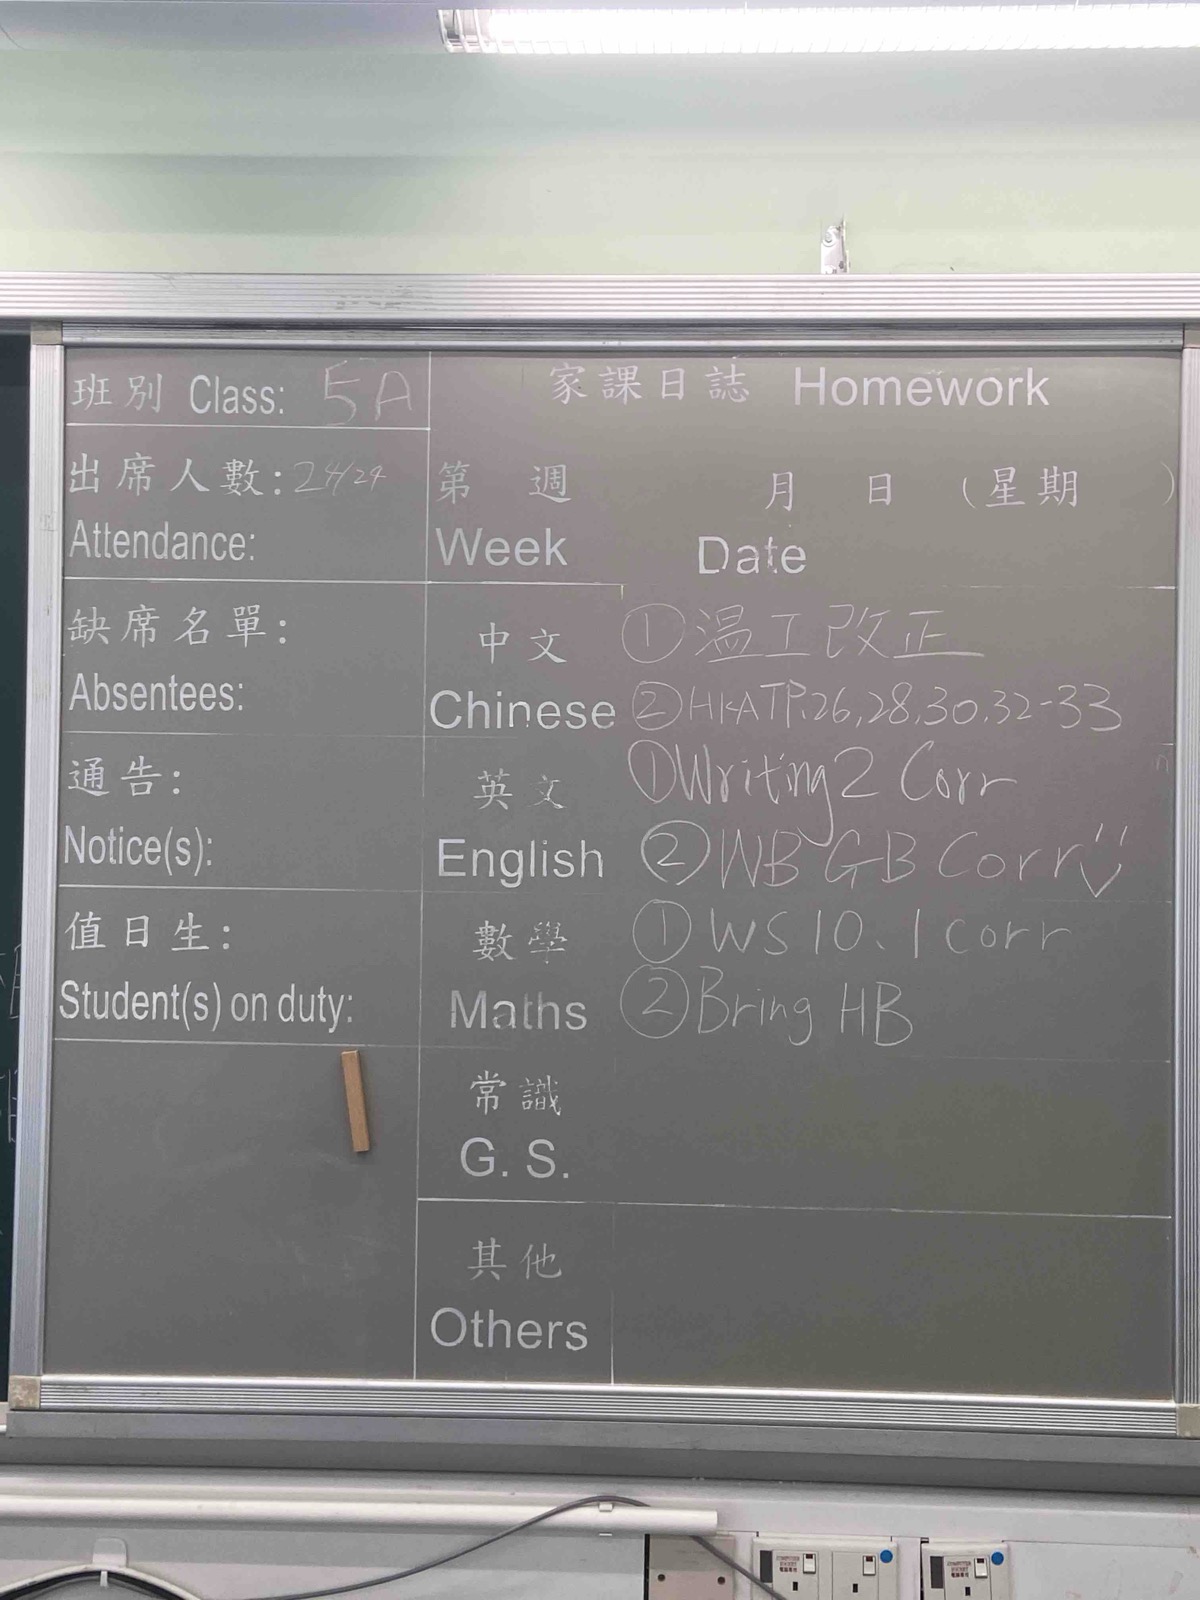 班別 Class: 5A
出席人數: 24/24
Attendance:
缺席名單:
Absentees:
通告:
Notice(s):
值日生:
Student(s) on duty:
家課日誌 Homework
第 週 月 日 (星期 )
Week Date
中文 ①溫工改正
Chinese ②HKATP.26,28,30,32-33
英文 ①Writing 2 Corr
English ②WB GB Corr
數學 ①WS 10.1 corr
Maths ②Bring HB
常識
G. S.
其他
Others
COMPUTER
SOCKET
電腦專用
COMPUTER
SOCKET
電腦專用